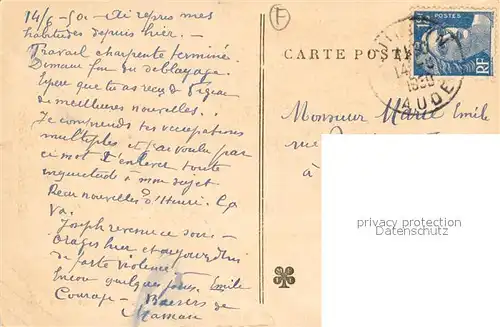 14/6-50. - Ai repris mes
habitudes depuis hier. -
Travail charpente terminé.
Demain fin du déblayage.
que tu as reçu de
de meilleures nouvelles.
Je comprends tes occupations
multiples et j'ai voulu par
ce mot t'enlever toute
inquiétude à mon sujet
Reçu nouvelles d'Henri. Ça
va.
Joseph revenu ce soir -
Orages hier et aujourd'hui
de forte violence
Encore quelques jours Emile
Courage - Baisers de
Maman
F
CARTE POSTALE
POSTES
RF
1950
AUDE
Monsieur Marie Emile
rue
à
persönliche Daten
personal data